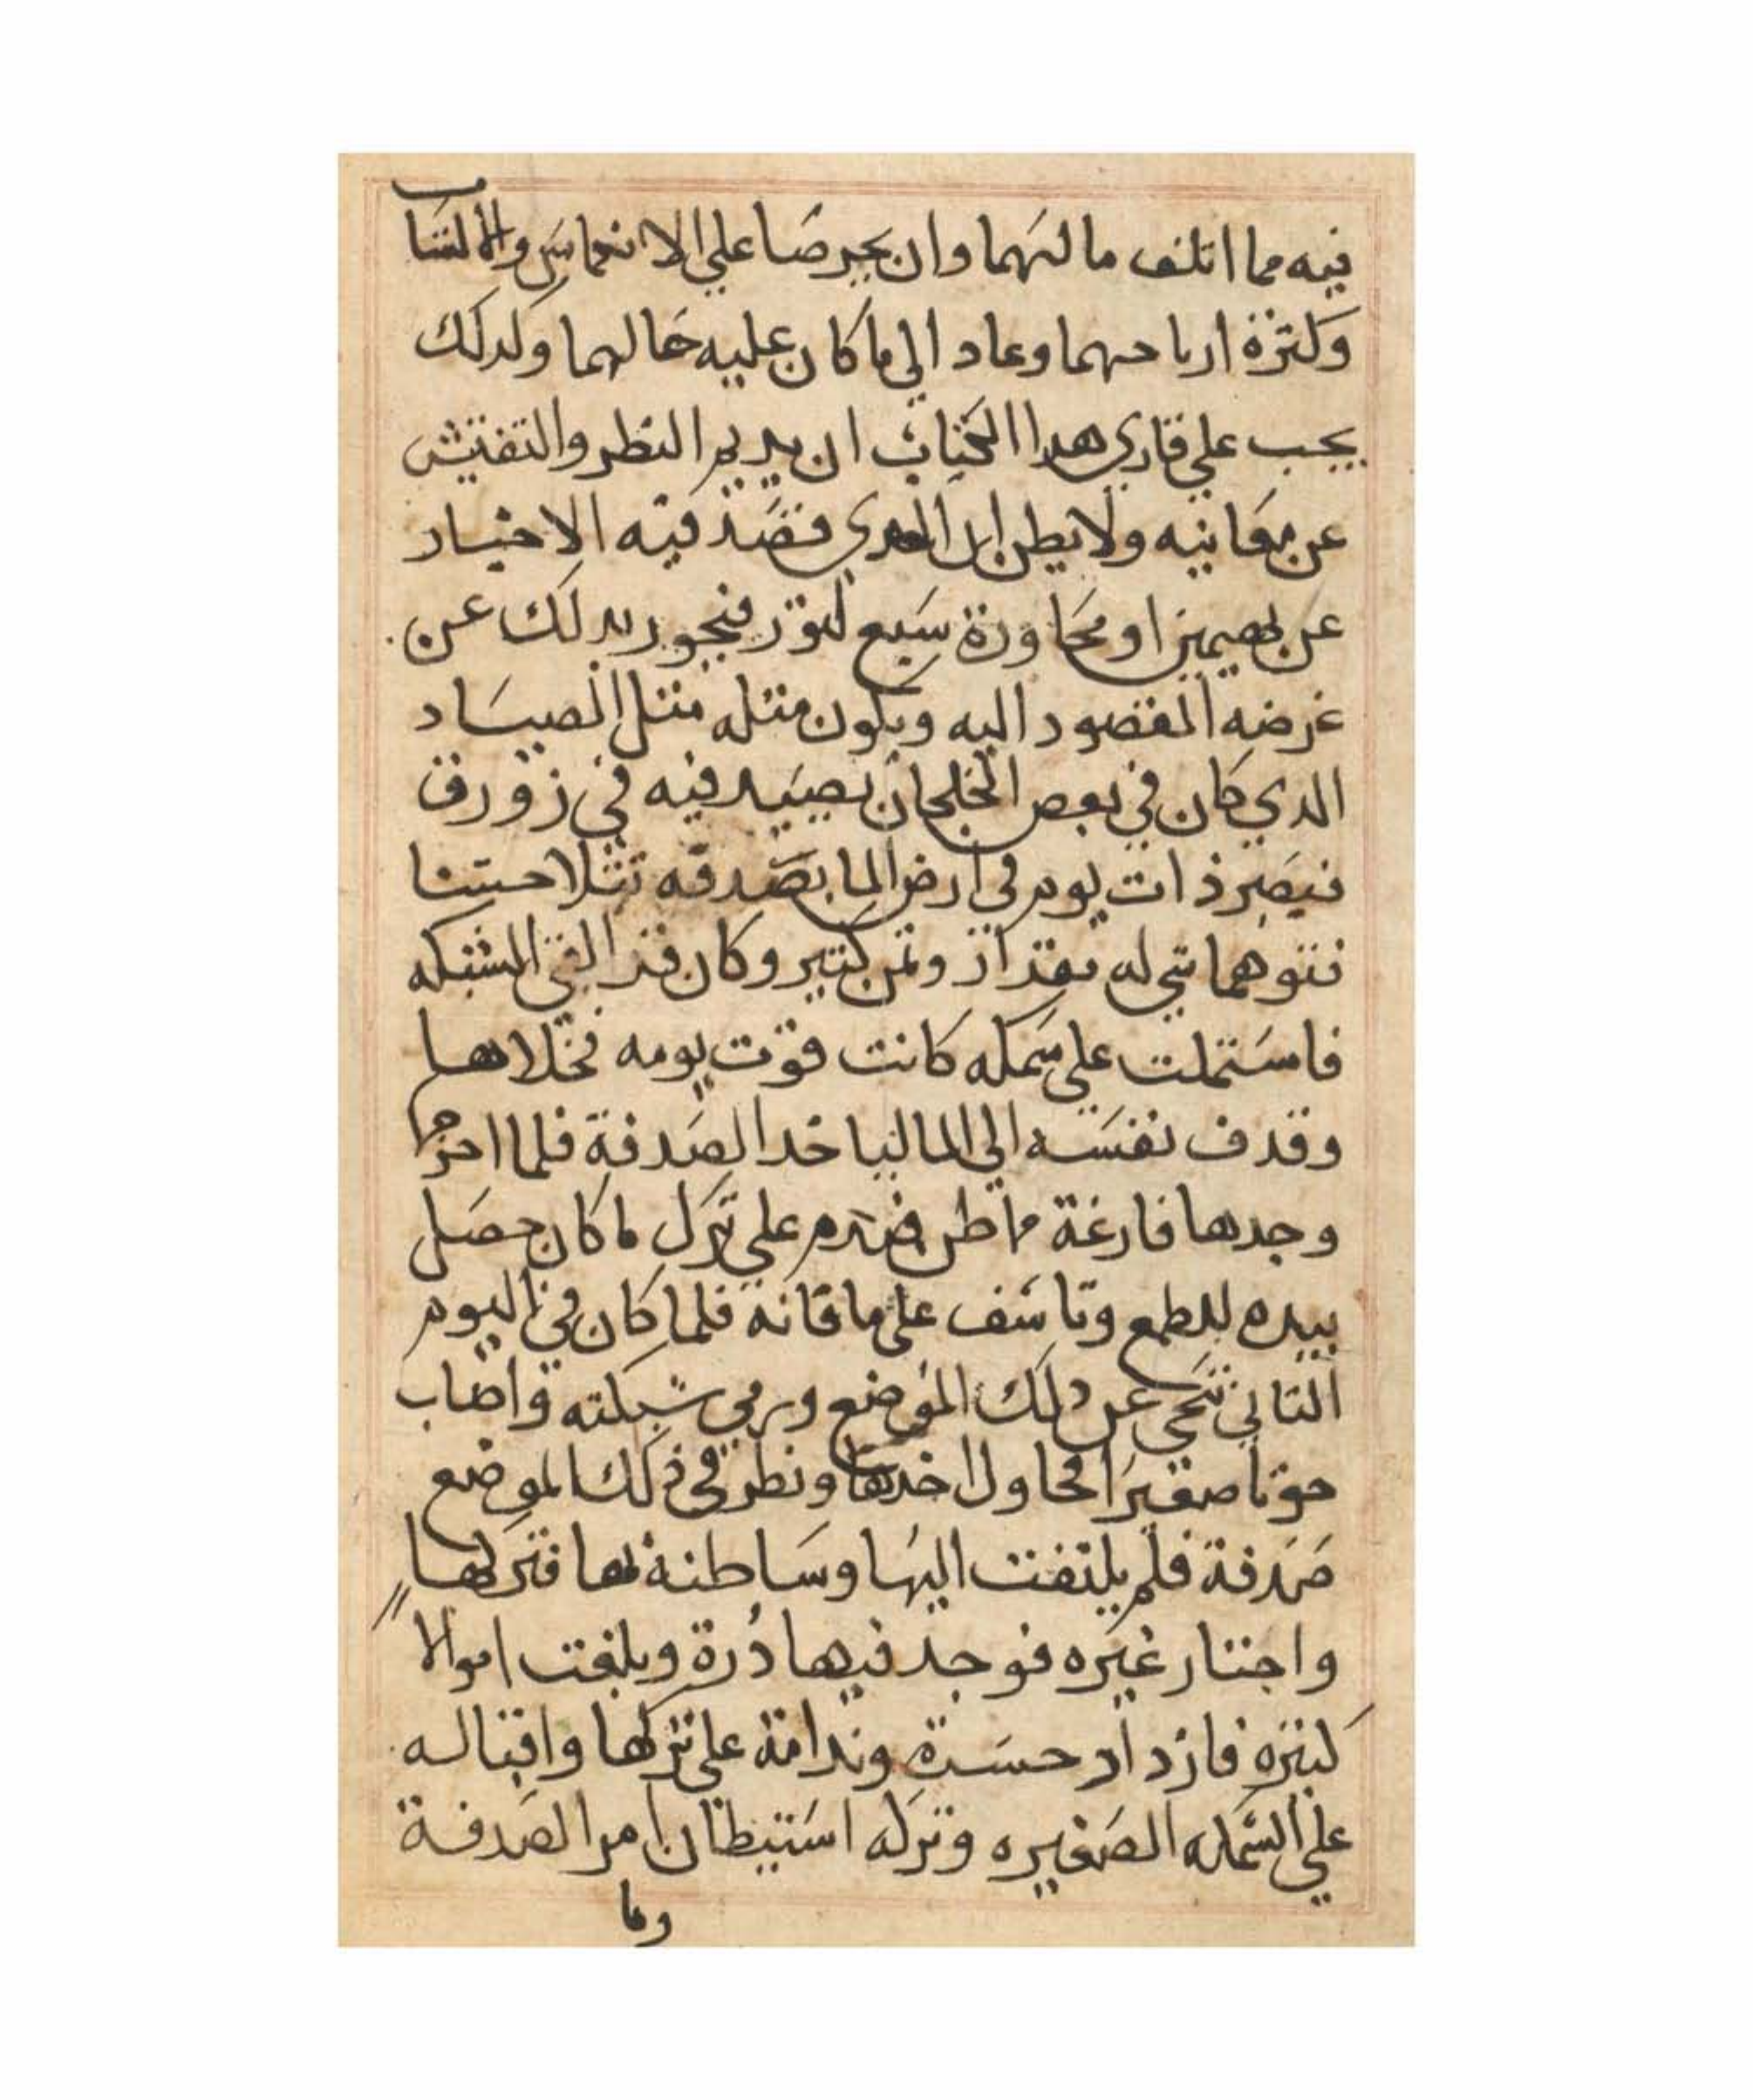 فيه مما اتلف مالهما وان يحرصا على الانغماس والالتساب
وكثرة ارباحهما وعاد الي ما كان عليه حالهما ولدلك
يجب علي قاري هدا الكتاب ان يديم النظر والتفتيش
عن معانيه ولا يظن ان المعري قصد فيه الاخبار
عن بهيمين او محاورة سبع لثور فيجور بدلك عن
غرضه المقصود اليه ويكون مثله مثل الصياد
الدي كان في بعض الخلجان يصيد فيه في زورق
فبصر ذات يوم في ارض الما بصدفه تتلا حسنا
فتوهما شي له مقدار وثمن كتير وكان قد القي الشبكه
فاستملت علي سمكه كانت قوت يومه فخلاها
وقدف نفسه الي الما لياخد الصدفة فلما اخرجها
وجدها فارغة مما ظن فندم علي ترك ما كان حصل
بيده للطمع وتاسف علي ما فاته فلما كان في اليوم
التاني تنحي عن دلك الموضع ورمي شبكته واصاب
حوتا صغيرا فحاول اخدها ونظر في ذلك الموضع
صدفة فلم يلتفت اليها وسا ظنه بها فتركها
واجتار غيره فوجد فيها درة وبلغت اموالا
كتيره فازداد حسدة وندامة علي تركها واقباله
علي السمكه الصغيره وتركه استيطان امر الصدفة
وما